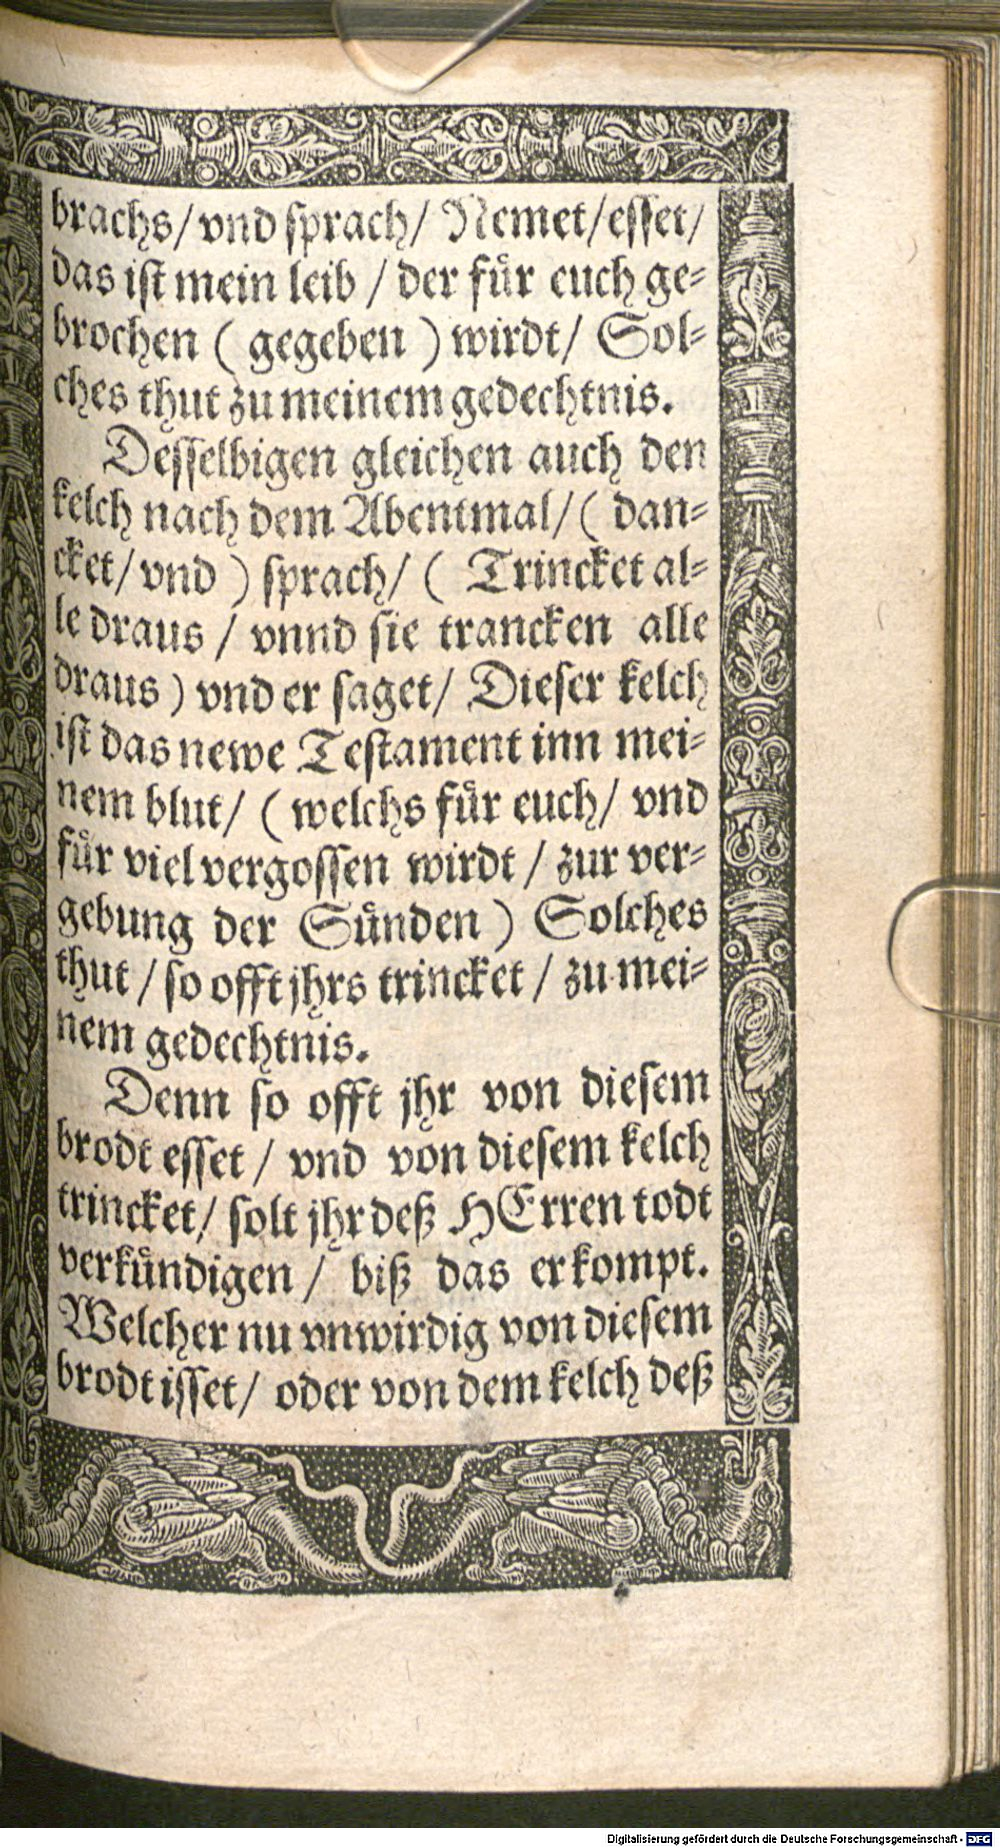 brachs/ vnd sprach/ Nemet/ esset/
das ist mein leib / der für euch ge⸗
brochen ( gegeben ) wirdt/ Sol⸗
ches thut zu meinem gedechtnis.
Desselbigen gleichen auch den
kelch nach dem Abentmal/ ( dan⸗
cket/ vnd ) sprach/ ( Trincket al⸗
le draus / vnnd sie trancken alle
draus ) vnd er saget/ Dieser kelch
ist das newe Testament inn mei⸗
nem blut/ ( welchs für euch/ vnd
für viel vergossen wirdt / zur ver⸗
gebung der Sünden ) Solches
thut / so offt jhrs trincket / zu mei⸗
nem gedechtnis.
Denn so offt jhr von diesem
brodt esset / vnd von diesem kelch
trincket/ solt jhr deß HErren todt
verkündigen / biß das er kompt.
Welcher nu vnwirdig von diesem
brodt isset/ oder von dem kelch deß
Digitalisierung gefördert durch die Deutsche Forschungsgemeinschaft - DFG